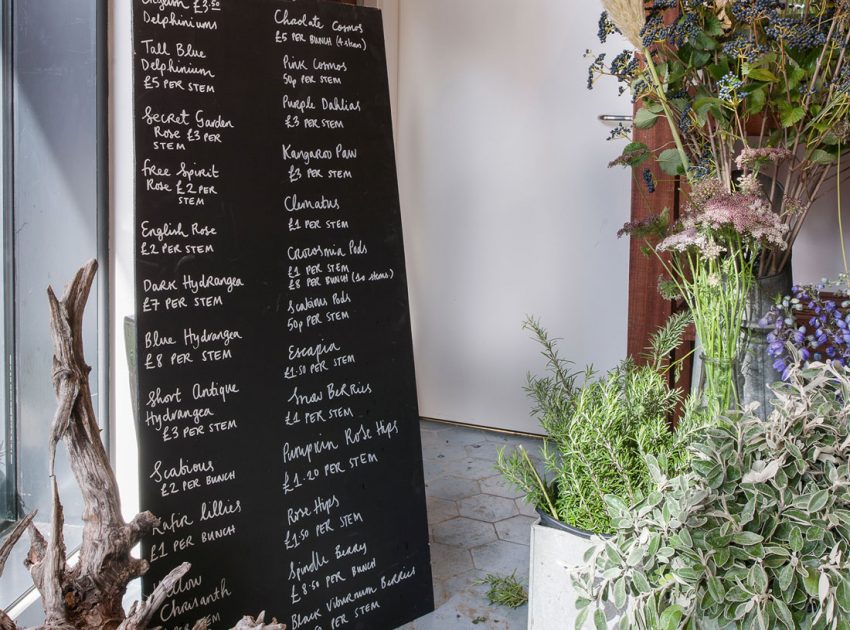 £3.50
Delphiniums
Tall Blue
Delphinium
£5 PER STEM
Secret Garden
Rose £3 PER
STEM
Free Spirit
Rose £2 PER
STEM
English Rose
£2 PER STEM
Dark Hydrangea
£7 PER STEM
Blue Hydrangea
£8 PER STEM
Short Antique
Hydrangea
£3 PER STEM
Scabious
£2 PER BUNCH
Kafir lillies
£1 PER BUNCH
Yellow
Chrasanth
Chaolate Cosmos
£5 PER BUNCH (4 stems)
Pink Cosmos
50p PER STEM
Purple Dahlias
£3 PER STEM
Kangaroo Paw
£3 PER STEM
Clematus
£1 PER STEM
Crocosmia Pods
£1 PER STEM
£8 PER BUNCH (10 stems)
Scabious Pods
50p PER STEM
Escapia
£1.50 PER STEM
Snow Berries
£1 PER STEM
Pumpkin Rose Hips
£1.20 PER STEM
Rose Hips
£1.50 PER STEM
Spindle Berry
£8.50 PER BUNCH
Black Viburnum Berries
PER STEM